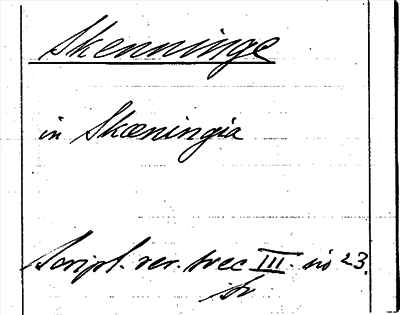 Skenninge
in Skæningia
Script. rer. svec III. no 23.